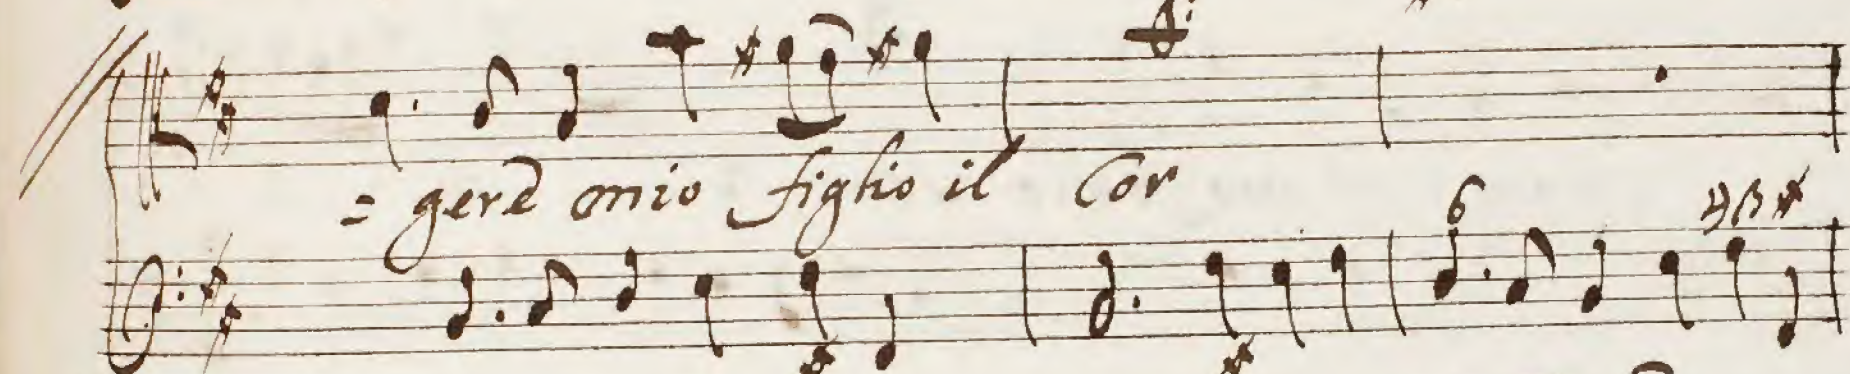 = gere mio figlio il Cor
6 43#